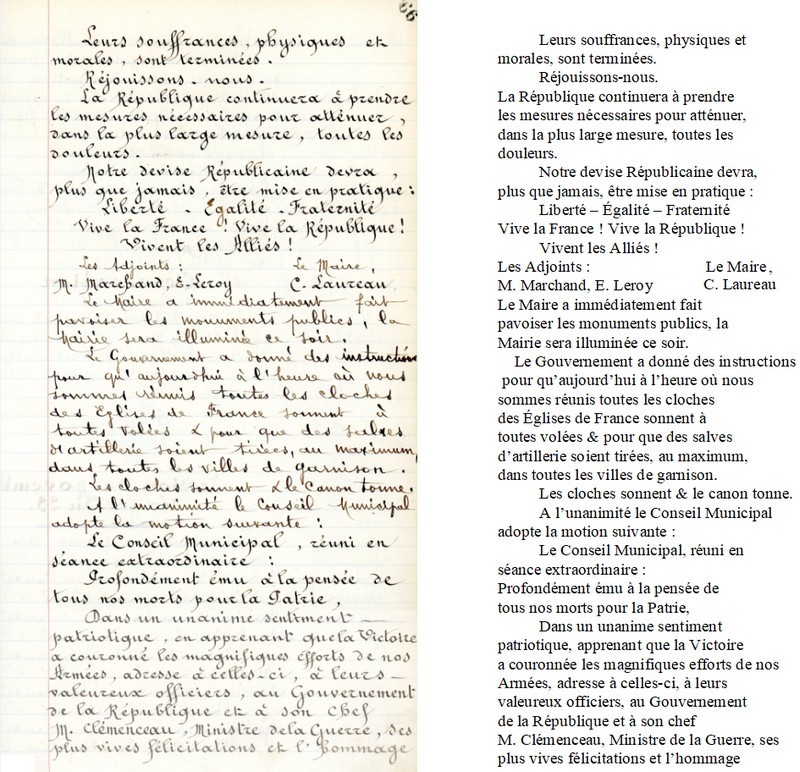 66
Leurs souffrances, physiques et
morales, sont terminées.
Réjouissons-nous.
La République continuera à prendre
les mesures nécessaires pour atténuer,
dans la plus large mesure, toutes les
douleurs.
Notre devise Républicaine devra,
plus que jamais, être mise en pratique :
Liberté - Égalité - Fraternité
Vive la France ! Vive la République !
Vivent les Alliés !
Les Adjoints : Le Maire,
M. Marchand, E. Leroy C. Laureau
Le Maire a immédiatement fait
pavoiser les monuments publics, la
Mairie sera illuminée ce soir.
Le Gouvernement a donné des instructions
pour qu'aujourdhui à l'heure où nous
sommes réunis toutes les cloches
des Eglises de France sonnent à
toutes volées & pour que des salves
d'artillerie soient tirées, au maximum,
dans toutes les villes de garnison.
Les cloches sonnent & le Canon tonne.
A l'unanimité le Conseil Municipal
adopte la motion suivante :
Le Conseil Municipal, réuni en
séance extraordinaire :
Profondément ému à la pensée de
tous nos morts pour la Patrie,
Dans un unanime sentiment
patriotique, en apprenant que la Victoire
a couronné les magnifiques efforts de nos
Armées, adresse à celles-ci, à leurs
valeureux officiers, au Gouvernement
de la République et à son Chef
M. Clémenceau, Ministre de la Guerre, ses
plus vives félicitations et l'hommage
Leurs souffrances, physiques et
morales, sont terminées.
Réjouissons-nous.
La République continuera à prendre
les mesures nécessaires pour atténuer,
dans la plus large mesure, toutes les
douleurs.
Notre devise Républicaine devra,
plus que jamais, être mise en pratique :
Liberté – Égalité – Fraternité
Vive la France ! Vive la République !
Vivent les Alliés !
Les Adjoints : Le Maire,
M. Marchand, E. Leroy C. Laureau
Le Maire a immédiatement fait
pavoiser les monuments publics, la
Mairie sera illuminée ce soir.
Le Gouvernement a donné des instructions
pour qu'aujourd'hui à l'heure où nous
sommes réunis toutes les cloches
des Églises de France sonnent à
toutes volées & pour que des salves
d'artillerie soient tirées, au maximum,
dans toutes les villes de garnison.
Les cloches sonnent & le canon tonne.
A l'unanimité le Conseil Municipal
adopte la motion suivante :
Le Conseil Municipal, réuni en
séance extraordinaire :
Profondément ému à la pensée de
tous nos morts pour la Patrie,
Dans un unanime sentiment
patriotique, apprenant que la Victoire
a couronnée les magnifiques efforts de nos
Armées, adresse à celles-ci, à leurs
valeureux officiers, au Gouvernement
de la République et à son chef
M. Clémenceau, Ministre de la Guerre, ses
plus vives félicitations et l'hommage